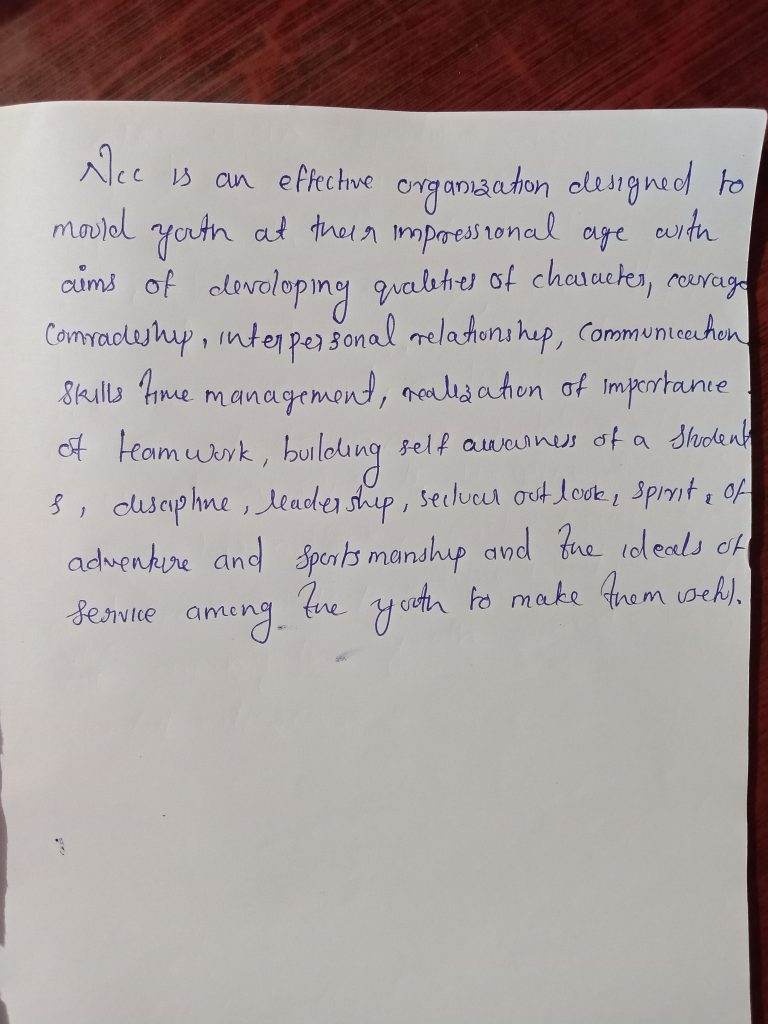 Ncc is an effective organization designed to
mould youth at their impressional age with
aims of devoloping qualities of character, courage
Comradeship, interpersonal relationship, communication
skills time management, realization of importance
of teamwork, building self awarness of a student
s, discipline, leadership, secluar outlook, spirit, of
adventure and sportsmanship and the ideals of
service among the youth to make them useful.